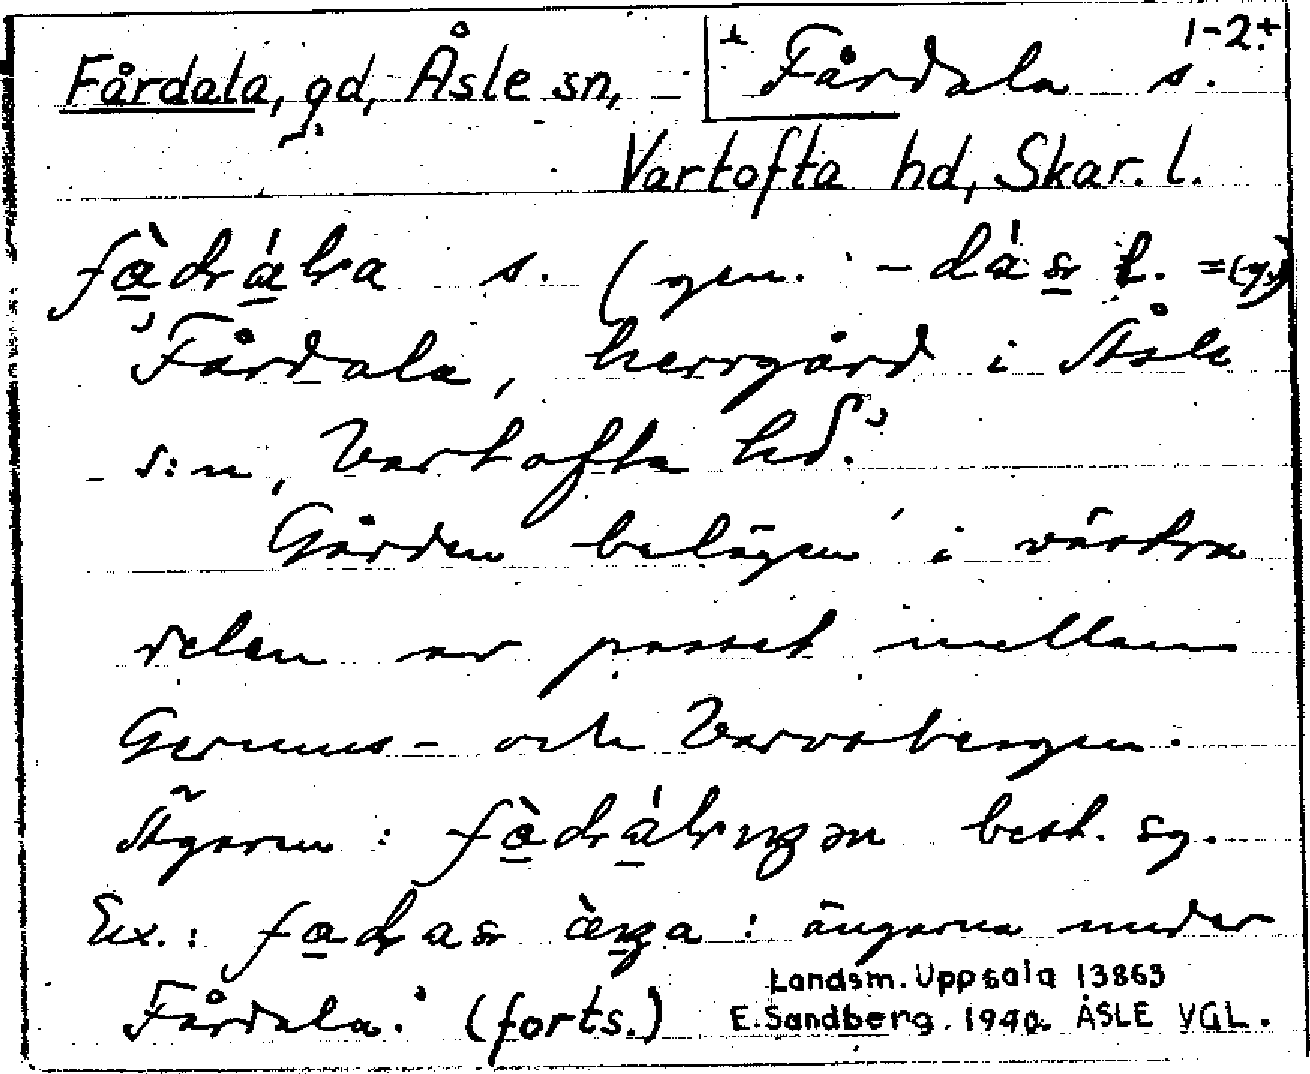 Fårdala, gd, Åsle sn, Fårdala s. 1-2+
Vartofta hd, Skar. l.
s. (gen.
'Fårdala, herrgård i Åsle
s:n, Vartofta hd.'
Gården belägen i västra
delen av passet mellan
Gerums- och Varvsbergen.
Ägaren: best. sg.
Ex.: ängarna under
Fårdala.' (forts.)
Landsm. Uppsala 13863
E. Sandberg. 1940. ÅSLE VGL.